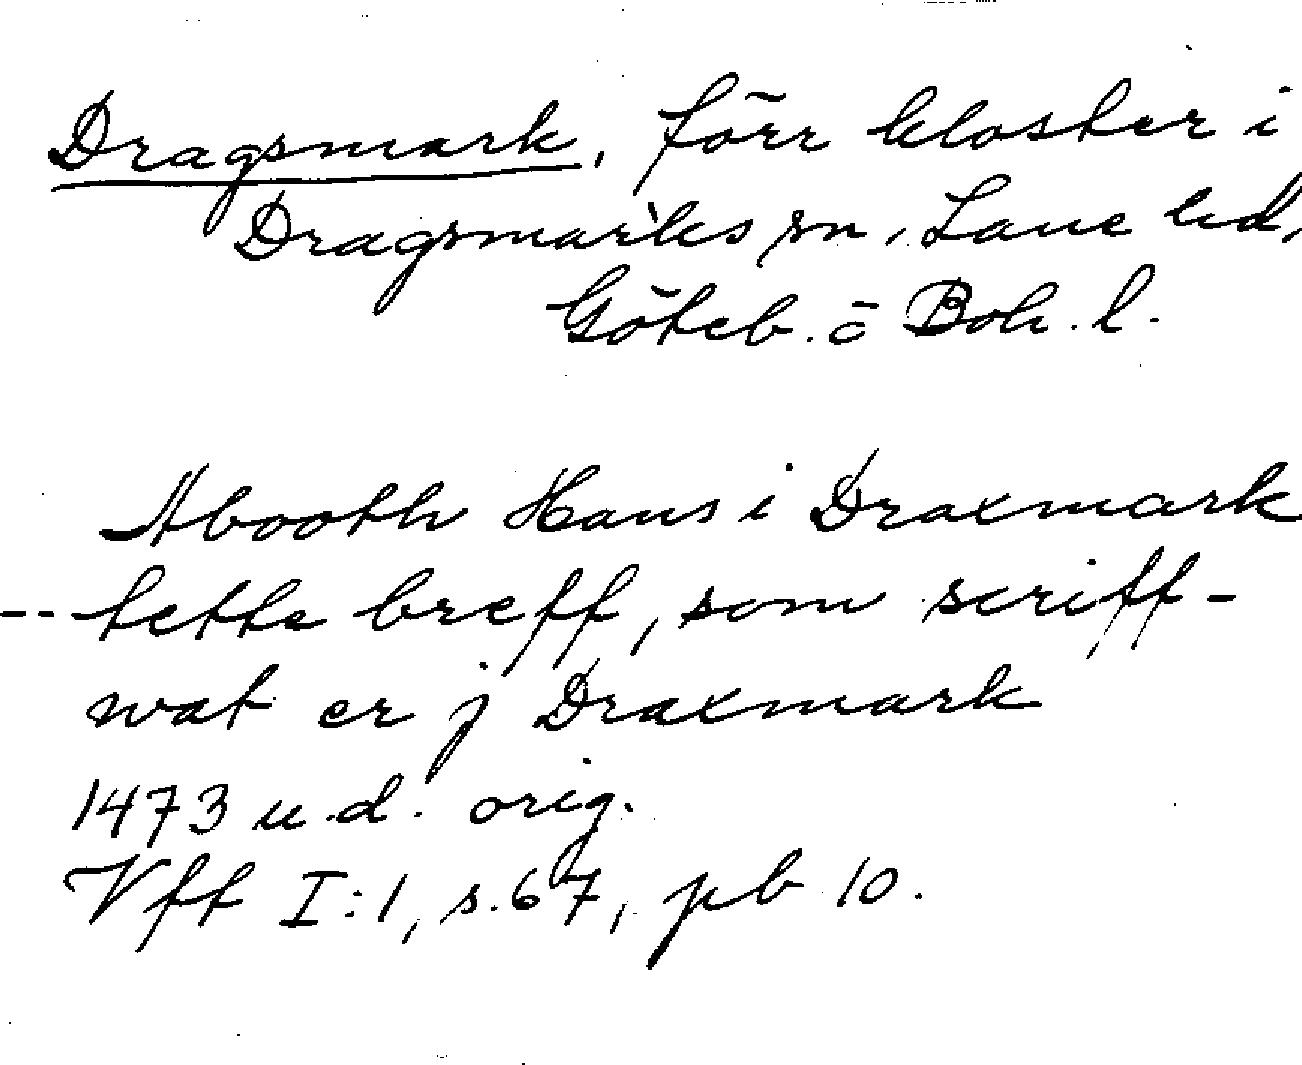 Dragsmark, förr kloster i
Dragsmarks sn, Lane hd,
Göteb. o Boh. l.
Abooth Hans i Draxmark
-- tetta breff, som scriff-
wat er j Draxmark
1473 u.d. orig.
Vff I:1, s. 67, pb 10.